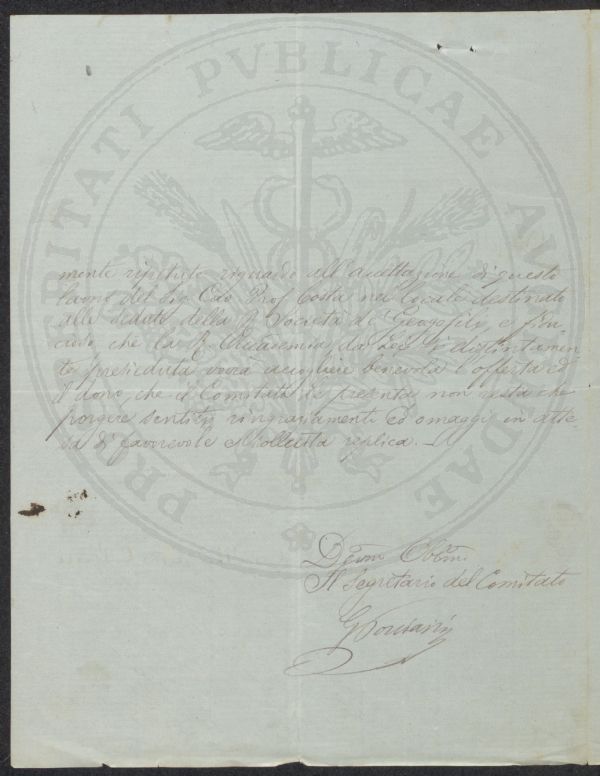 PROSPERITATI PVBLICAE AVGENDAE
mente ripetuto riguardo all'accettazione di questo
lavoro del Sig. Cav. Prof. Costa nel locale destinato
alle sedute della R. Società di Georgofili, e fidu-
cioso che la R. Accademia da Lei sì distintamen-
te presieduta vorrà accogliere benevola l'offerta ed
il dono che il Comitato le presenta non resta che
porgere sentiti ringraziamenti ed omaggi in atte-
sa di favorevole e sollecita replica. —
Devmo Obbmo
Il Segretario del Comitato
G